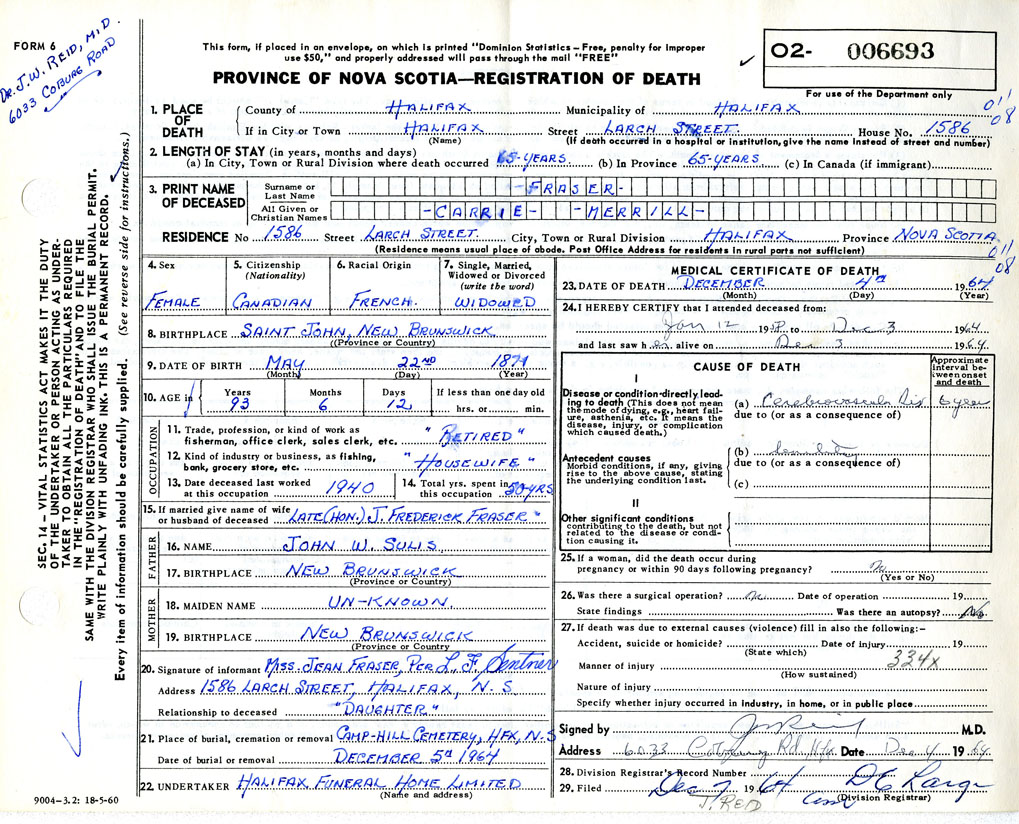 FORM 6
Dr. J. W. REID, M.D.
6033 COBURG ROAD
This form, if placed in an envelope, on which is printed "Dominion Statistics – Free, penalty for improper
use $50," and properly addressed will pass through the mail "FREE"
PROVINCE OF NOVA SCOTIA—REGISTRATION OF DEATH
O2- 006693
For use of the Department only
011
08
1. PLACE OF DEATH
County of HALIFAX Municipality of HALIFAX
If in City or Town HALIFAX Street LARCH STREET. House No. 1586
(Name) (If death occurred in a hospital or institution, give the name instead of street and number)
2. LENGTH OF STAY (in years, months and days)
(a) In City, Town or Rural Division where death occurred 65-YEARS (b) In Province 65-YEARS (c) In Canada (if immigrant)
3. PRINT NAME OF DECEASED
Surname or Last Name -FRASER-
All Given or Christian Names -CARRIE- -MERRILL-
RESIDENCE No 1586 Street LARCH STREET. City, Town or Rural Division HALIFAX Province NOVA SCOTIA
(Residence means usual place of abode. Post Office Address for residents in rural parts not sufficient)
011
08
4. Sex
FEMALE
5. Citizenship
(Nationality)
CANADIAN
6. Racial Origin
FRENCH.
7. Single, Married,
Widowed or Divorced
(write the word)
WIDOWED
8. BIRTHPLACE SAINT JOHN, NEW BRUNSWICK
(Province or Country)
9. DATE OF BIRTH MAY 22ND 1871
(Month) (Day) (Year)
10. AGE in
Years Months Days If less than one day old
93 6 12 hrs. or min.
OCCUPATION
11. Trade, profession, or kind of work as
fisherman, office clerk, sales clerk, etc. "RETIRED"
12. Kind of industry or business, as fishing,
bank, grocery store, etc. "HOUSEWIFE"
13. Date deceased last worked
at this occupation 1940
14. Total yrs. spent in
this occupation 50 YRS
15. If married give name of wife
or husband of deceased LATE (HON.) J. FREDERICK FRASER"
FATHER
16. NAME JOHN W. SULIS
17. BIRTHPLACE NEW BRUNSWICK
(Province or Country)
MOTHER
18. MAIDEN NAME UN-KNOWN.
19. BIRTHPLACE NEW BRUNSWICK
(Province or Country)
20. Signature of informant MISS. JEAN FRASER, PER L. F. Sentner
Address 1586 LARCH STREET, HALIFAX, N. S
Relationship to deceased "DAUGHTER"
21. Place of burial, cremation or removal CAMP-HILL CEMETERY, HFX, N.S
Date of burial or removal DECEMBER 5th 1964
22. UNDERTAKER HALIFAX FUNERAL HOME LIMITED
(Name and address)
9004–3.2: 18-5-60
MEDICAL CERTIFICATE OF DEATH
23. DATE OF DEATH DECEMBER 4th 1964
(Month) (Day) (Year)
24. I HEREBY CERTIFY that I attended deceased from:
Jan 12 19 to Dec 3 1964
and last saw her alive on Dec 3 1964.
CAUSE OF DEATH
Approximate
interval be-
tween onset
and death
I
Disease or condition directly lead-
ing to death (This does not mean
the mode of dying, e.g., heart fail-
ure, asthenia, etc. It means the
disease, injury, or complication
which caused death.)
(a) Cerebrovascular Dis 6 year
due to (or as a consequence of)
Antecedent causes
Morbid conditions, if any, giving
rise to the above cause, stating
the underlying condition last.
(b)
due to (or as a consequence of)
(c)
II
Other significant conditions
contributing to the death, but not
related to the disease or condi-
tion causing it.
25. If a woman, did the death occur during
pregnancy or within 90 days following pregnancy? No
(Yes or No)
26. Was there a surgical operation? no Date of operation 19
State findings Was there an autopsy? No
27. If death was due to external causes (violence) fill in also the following:–
Accident, suicide or homicide? Date of injury 19
(State which)
334X
Manner of injury
(How sustained)
Nature of injury
Specify whether injury occurred in industry, in home, or in public place
Signed by M.D.
Address 6033 Coburg Rd. Hfx Date Dec 4 1964
28. Division Registrar's Record Number
29. Filed Dec 7 1964 D E Large
(Division Registrar)
J. REID
SEC. 14 – VITAL STATISTICS ACT MAKES IT THE DUTY
OF THE UNDERTAKER OR PERSON ACTING AS UNDER-
TAKER TO OBTAIN ALL THE PARTICULARS REQUIRED
IN THE "REGISTRATION OF DEATH" AND TO FILE THE
SAME WITH THE DIVISION REGISTRAR WHO SHALL ISSUE THE BURIAL PERMIT.
WRITE PLAINLY WITH UNFADING INK. THIS IS A PERMANENT RECORD.
Every item of information should be carefully supplied. (See reverse side for instructions.)